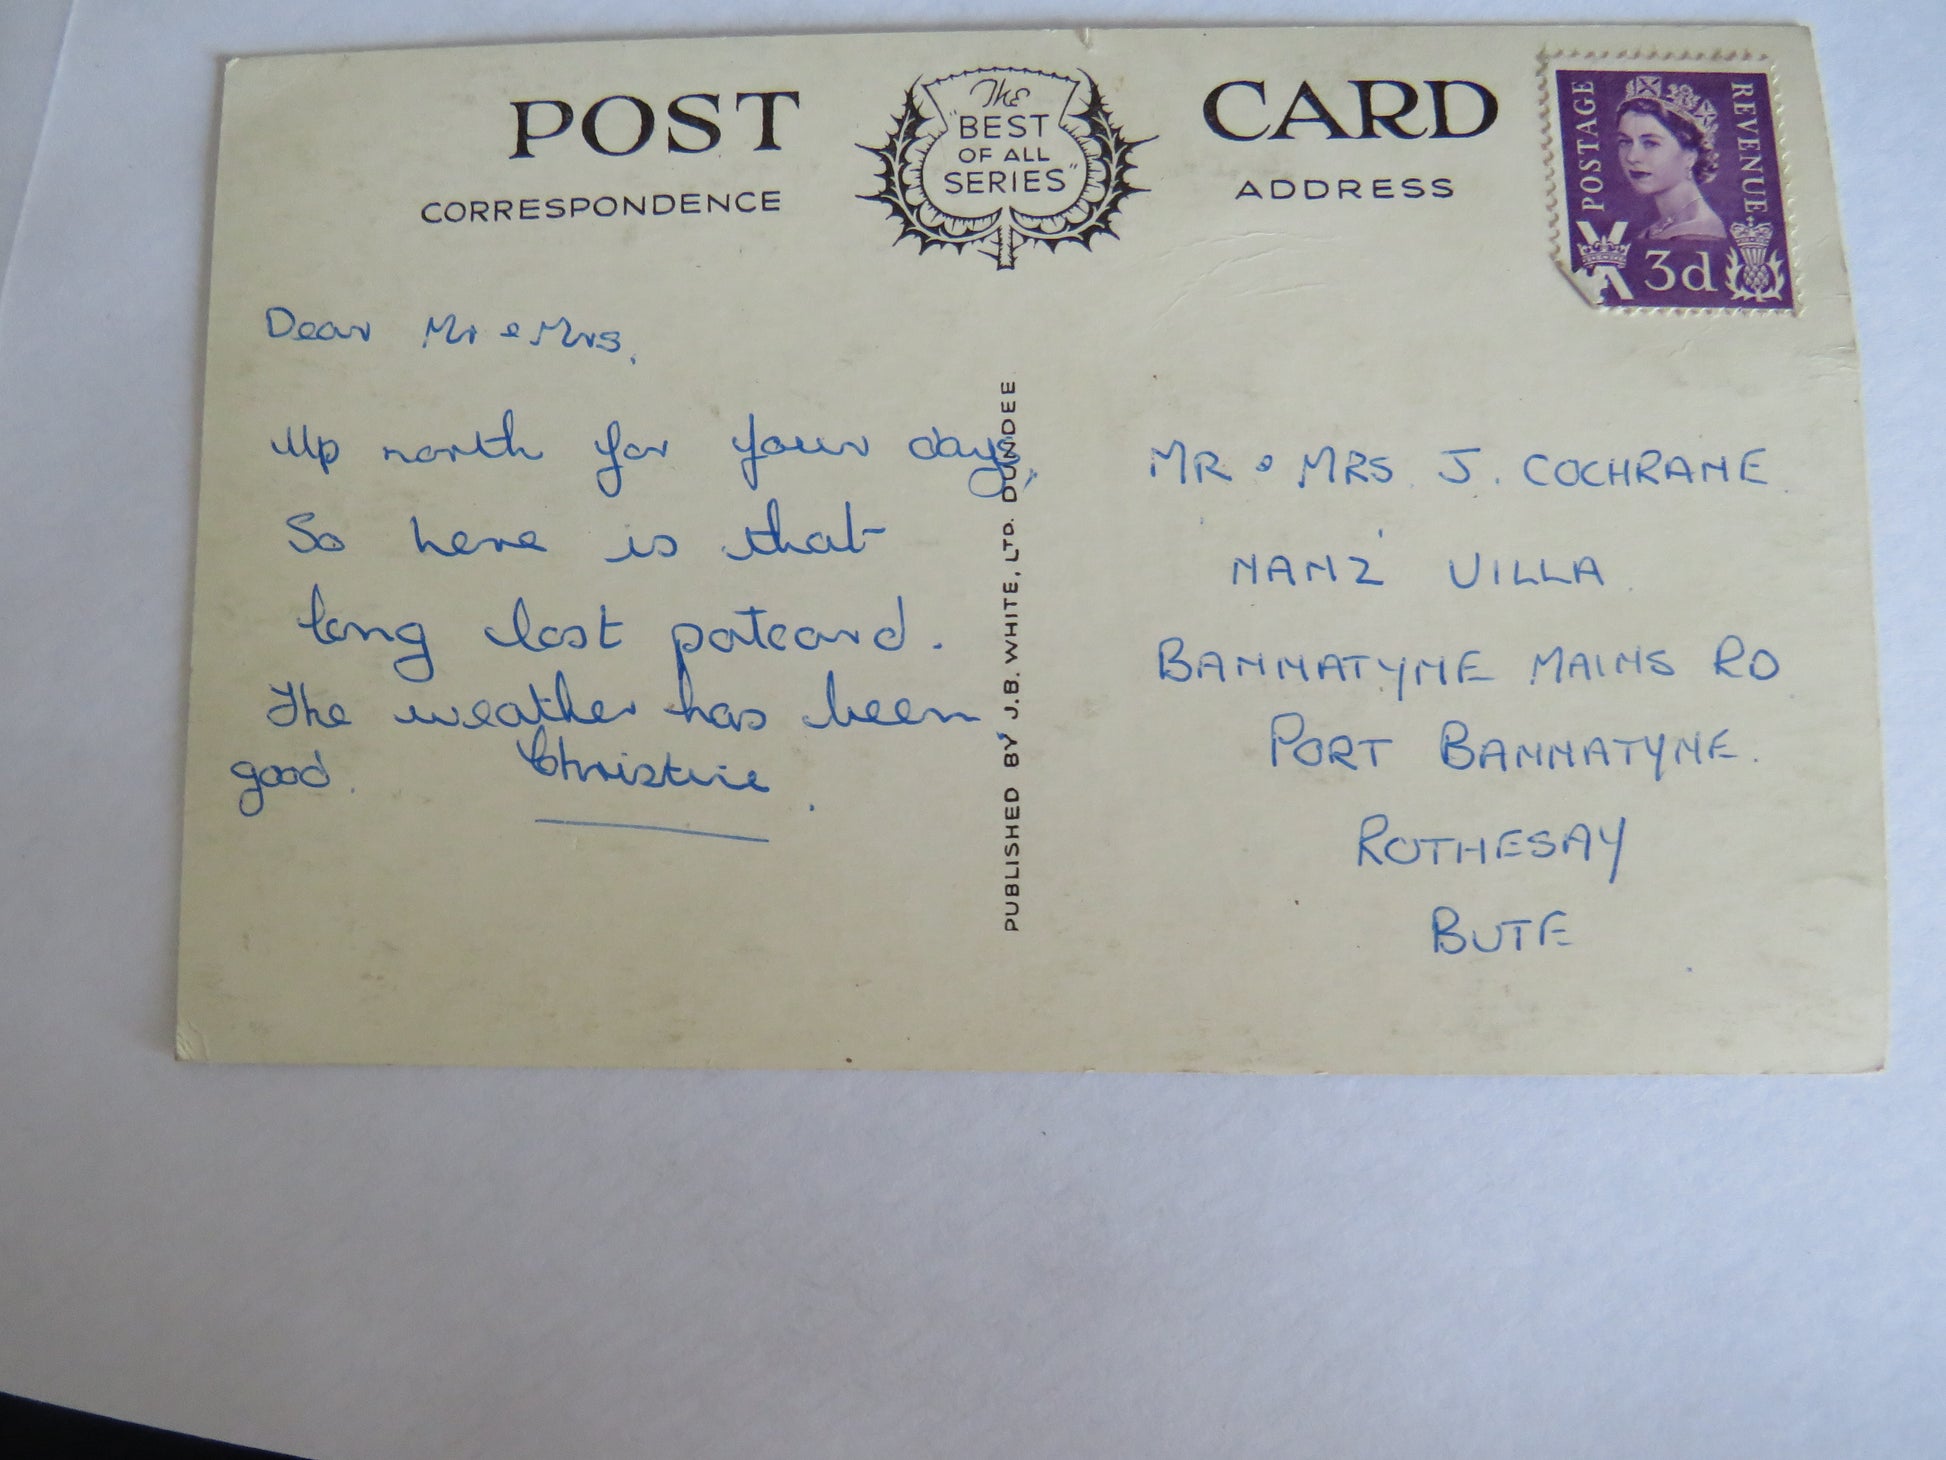 POST CARD
The
"BEST
OF ALL
SERIES"
CORRESPONDENCE
ADDRESS
POSTAGE
REVENUE
3d
Dear Mr & Mrs,
Up north for four days,
So here is that
long lost patcard.
The weather has been
good. Christine.
PUBLISHED BY J.B. WHITE, LTD. DUNDEE
MR & MRS J. COCHRANE
'NANZ' VILLA
BANNATYNE MAINS RD
PORT BANNATYNE.
ROTHESAY
BUTE